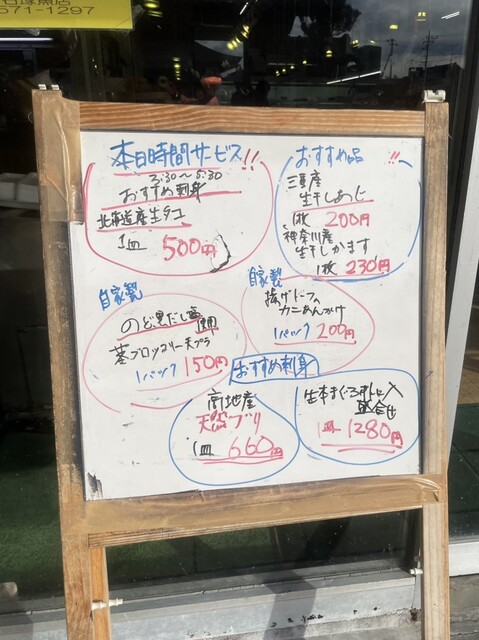 671-1297
本日時間サービス!!
3:30～5:30
おすすめ刺身
北海道産生タコ
1皿 500円
おすすめ品!!
三重産
生干しあじ
1枚 200円
神奈川産
生干しかます
1枚 230円
自家製
のど黒だし塩使用
茎ブロッコリー天プラ
1パック 150円
自家製
揚げドーフの
カニあんかけ
1パック 200円
おすすめ刺身
産
天然ブリ
1皿 660円
生本まぐろ中トロ入
盛合せ
1皿 1280円